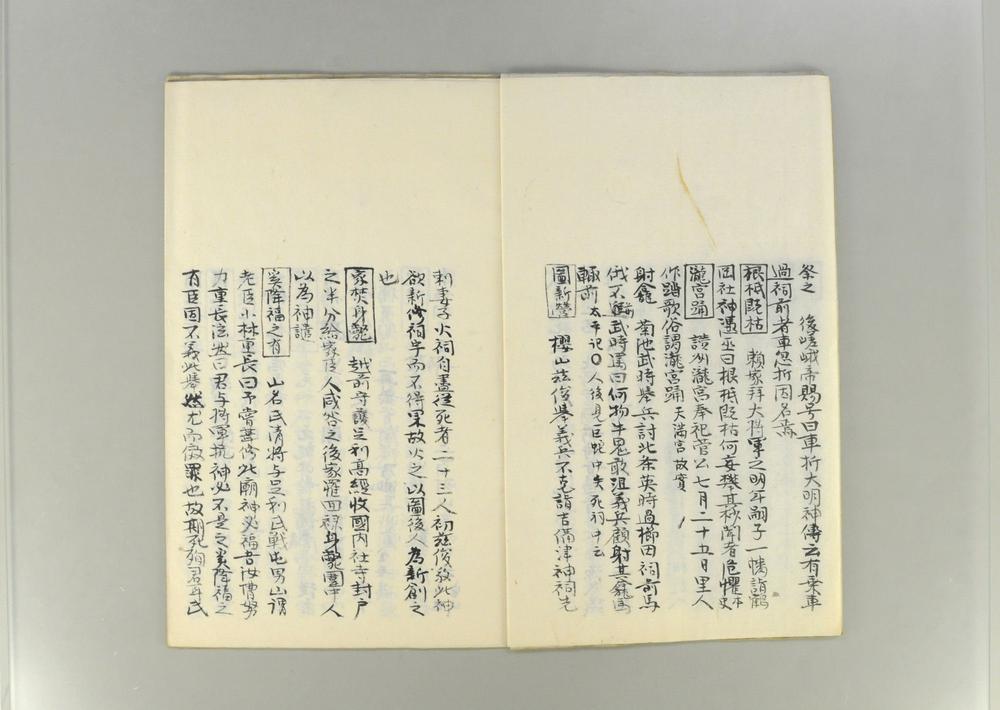 祭之　後嵯峨帝賜号曰車折大明神傳云有乗車
過祠前者車忽折因名焉
根柢既枯　頼家拜大将軍之明年嗣子一幡詣鶴
岡社神憑巫曰根柢既枯何妄攀其秒聞者危懼
瀧宮踊　讃州瀧宮奉祀菅公七月二十五日里人
作踏歌俗謂瀧宮踊 天満宮故實
射龕　菊池武時擧兵討北条英時過櫛田祠前馬
俄不 武時罵曰何物牛鬼敢沮義兵顧射其龕馬
輙前 太平記〇人後見巨蛇中矢死祠中云
圖新營　櫻山玆俊擧義兵不克詣吉備津神祠先
刺妻子火祠自盡從死者二十三人初玆俊敬此神
欲新修祠宇而不得果故火之以圖後人為新創之
也
家焚身 　越前守護足利髙經收國内社寺封戸
之半分給家臣人咸咎之後家罹回禄身 人
以為神譴
奚降福之有　山名氏清将与足利氏戰屯男山謂
老臣小林重長曰予嘗葺修此廟神必福吾汝曹努
力重長泣 曰君与将軍抗神必不是之奚降福之
有臣固不義此擧然尤而傚罪也故期死殉君耳氏